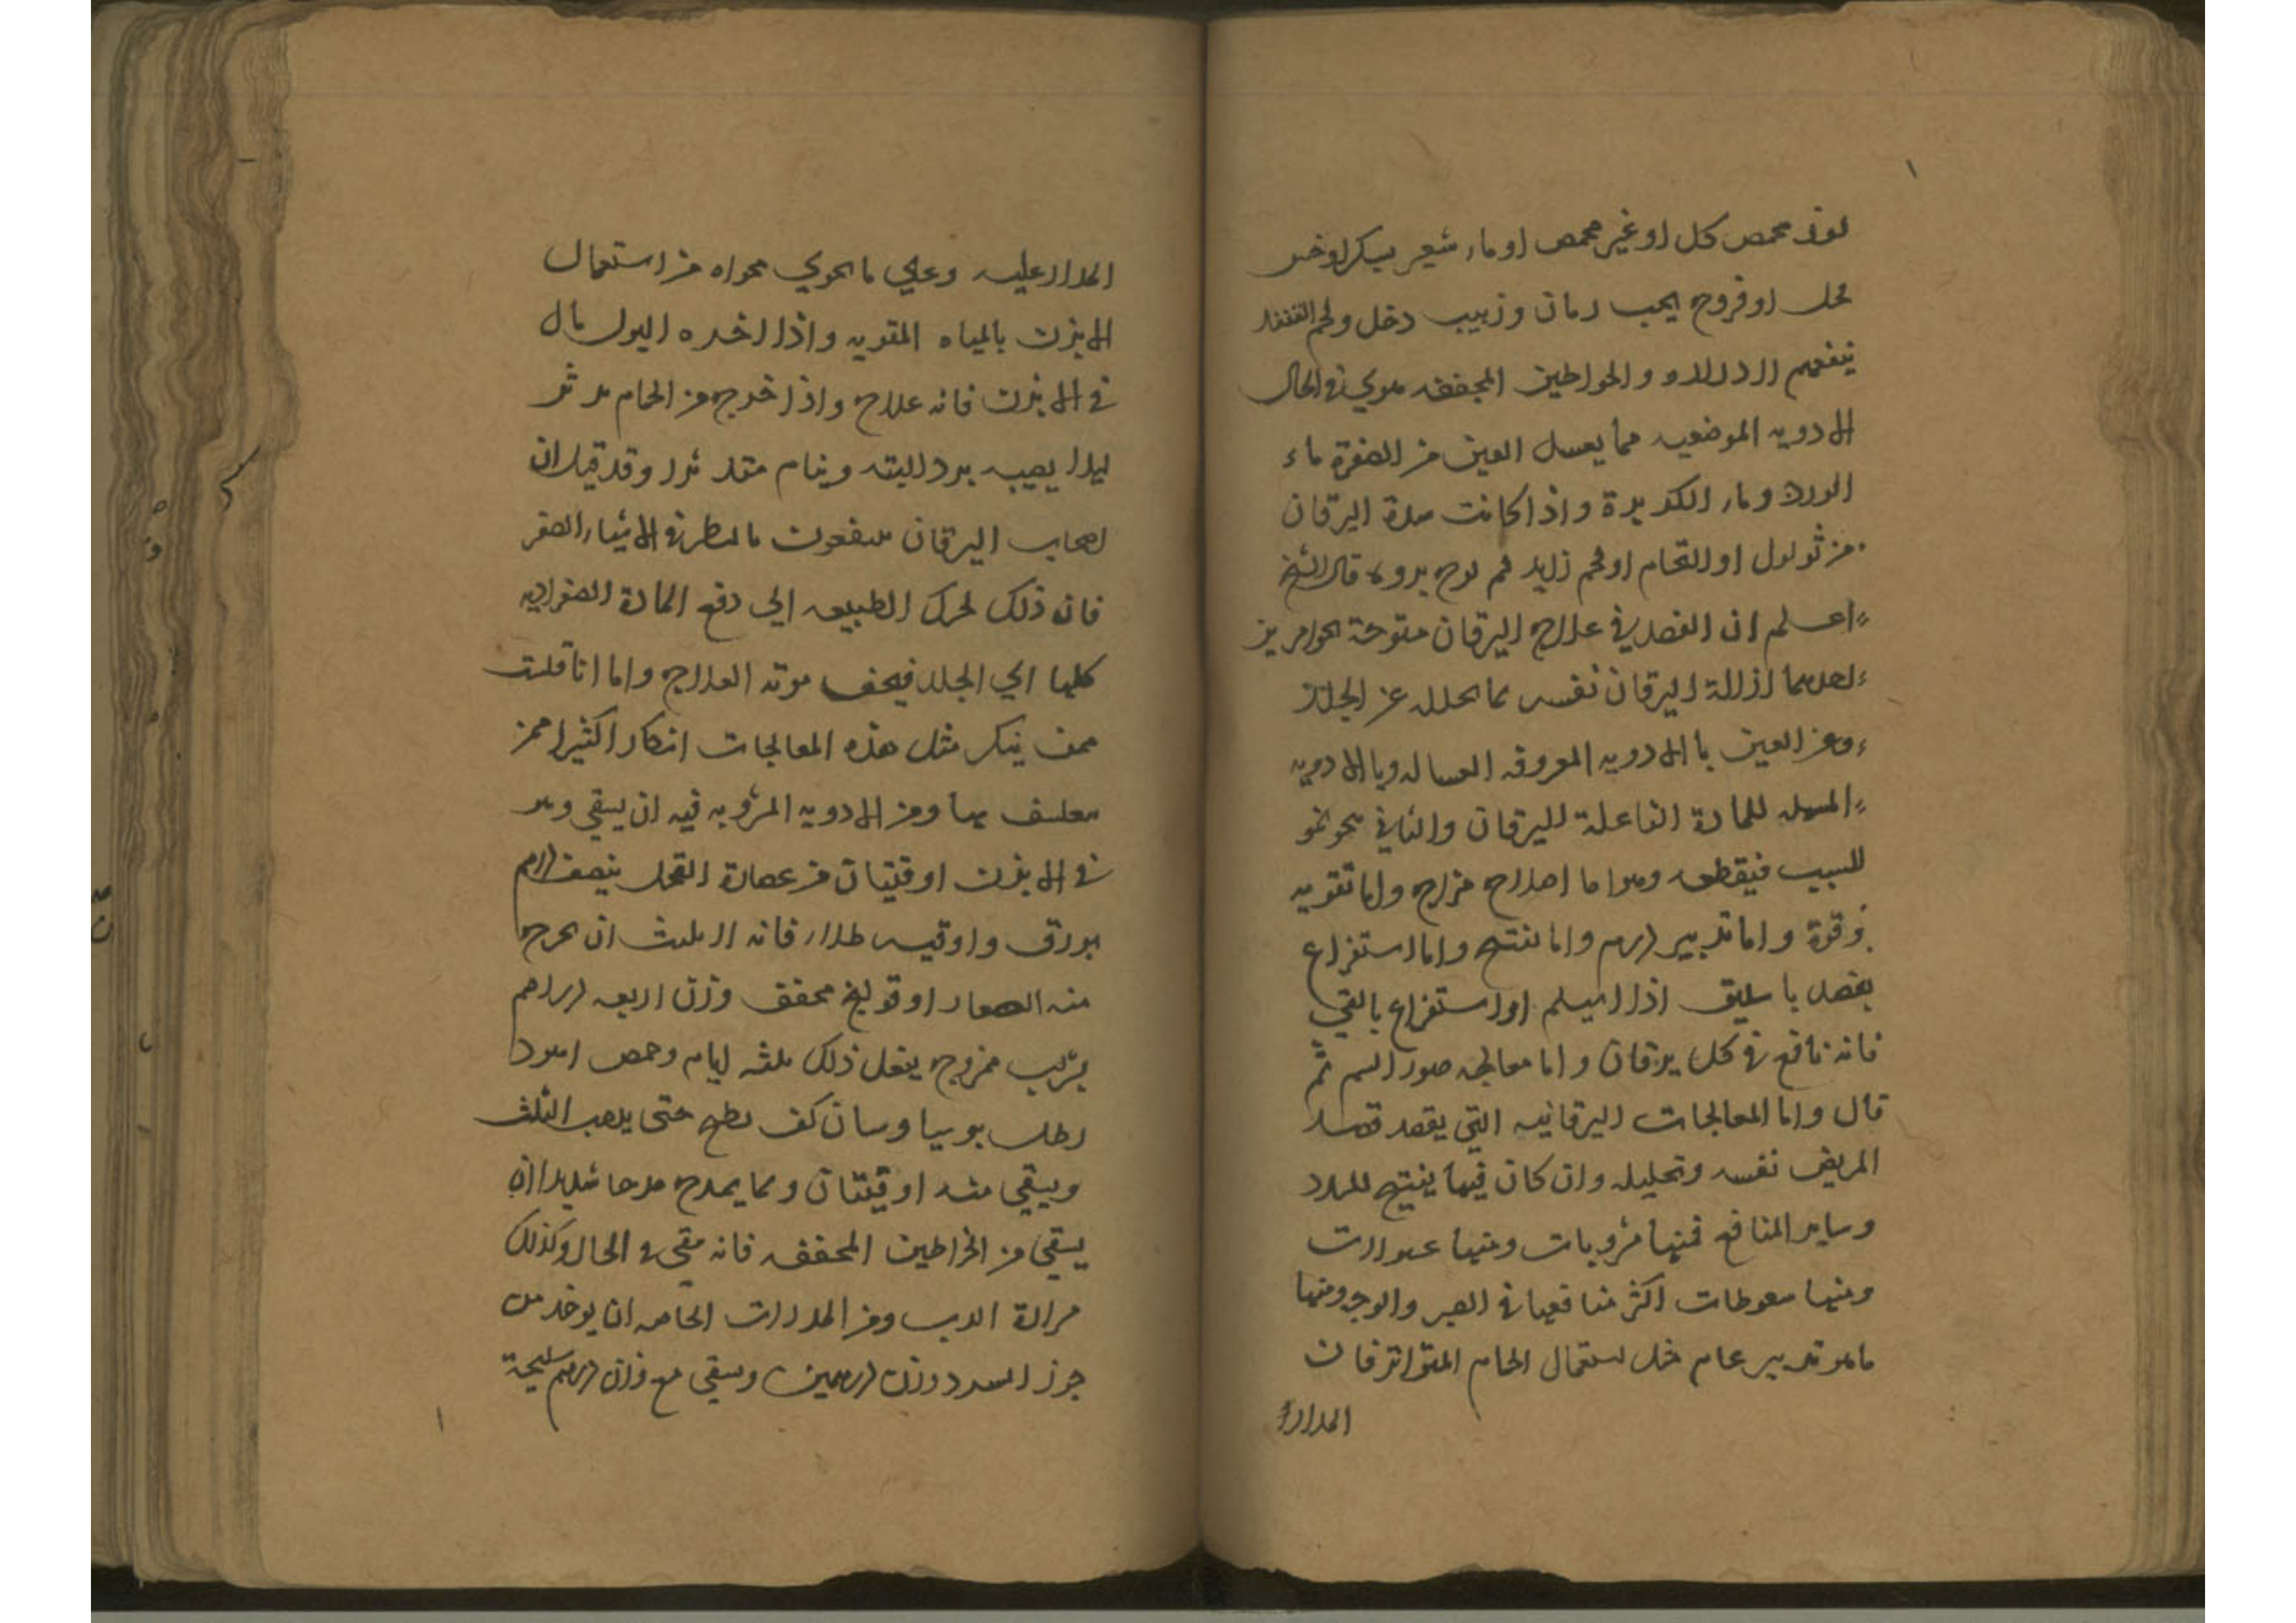 لوز محمص كل او غير محمص او ماء شعير بسكر او خبز
بخل او فروج بحب رمان وزبيب وخل ولحم القنفد
ينفعهم والخراطين المجففه في الحال
الادويه الموضعيه مما يغسل العين من الصفرة ماء
الورد وماء الكزبرة واذا كانت مدة اليرقان
من ثولول او التحام او لحم زايد فلم يرج بروه قال الشيخ
اعلم ان القصد في علاج اليرقان متوجة نحو امرين
احدهما ازالة اليرقان نفسه بما يحلله عن الجلد
وعن العين با الادويه المعروفه الغساله وبا الادويه
المسهله للمادة الفاعلة لليرقان والثاني نحو
السبب فيقطعه وهو اما اصلاح مزاج واما تقويه
قوة واما تدبير ورم واما تفتيح واما استفراغ
بفصد باسليق او استفراغ بالقي
فانه نافع في كل يرقان واما معالجه ضرر السم ثم
قال واما المعالجات اليرقانيه التي يقصد قصد
المريض نفسه وتحليله وان كان فيها يفتيح للسدد
وساير المنافع فمنها مشروبات ومنها غسولات
ومنها سعوطات اكثر منافعها في العين والوجه ومنها
ما هو تدبير عام مثل استعمال الحمام المتواتر فان
المدار
المدار عليه وعلي ما يجري مجراه من استعمال
الابزن بالمياه المقويه واذا اخده البول بال
في الابزن فانه علاج واذا خرج من الحمام تدثر
ليلا يصيبه برد البته وينام متدثرا وقد قيل ان
اصحاب اليرقان ينتفعون بالنظر في الاشياء الصفر
فان ذلك يحرك الطبيعه الي دفع المادة الصفراويه
كلها الي الجلد فيخف موته العلاج واما انا فلست
ممن ينكر مثل هذه المعالجات انكارا كثيرا ممن
يتفلسف بها ومن الادويه المشروبه فيه ان يسقي وهو
في الابزن اوقيتان من عصارة الفجل بنصف درهم
بورق واوقيه طلاء فانه لا يلبث ان يخرج
منه الصفار او فوليخ مجفف وزن اربعه دراهم
بشراب ممزوج يفعل ذلك ثلثه ايام وحمص اسود
رطل كف يطبخ حتي يدهب الثلث
ويسقي منه اوقيتان ومما يمدح مدحا شديدا ان
يسقي من الخراطين المجففه فانه في الحال وكذلك
مرارة الدب ومن المدرات الخاصه ان يوخد من
جوز السرو وزن درهمين ويسقي مع وزن درهم سليخة